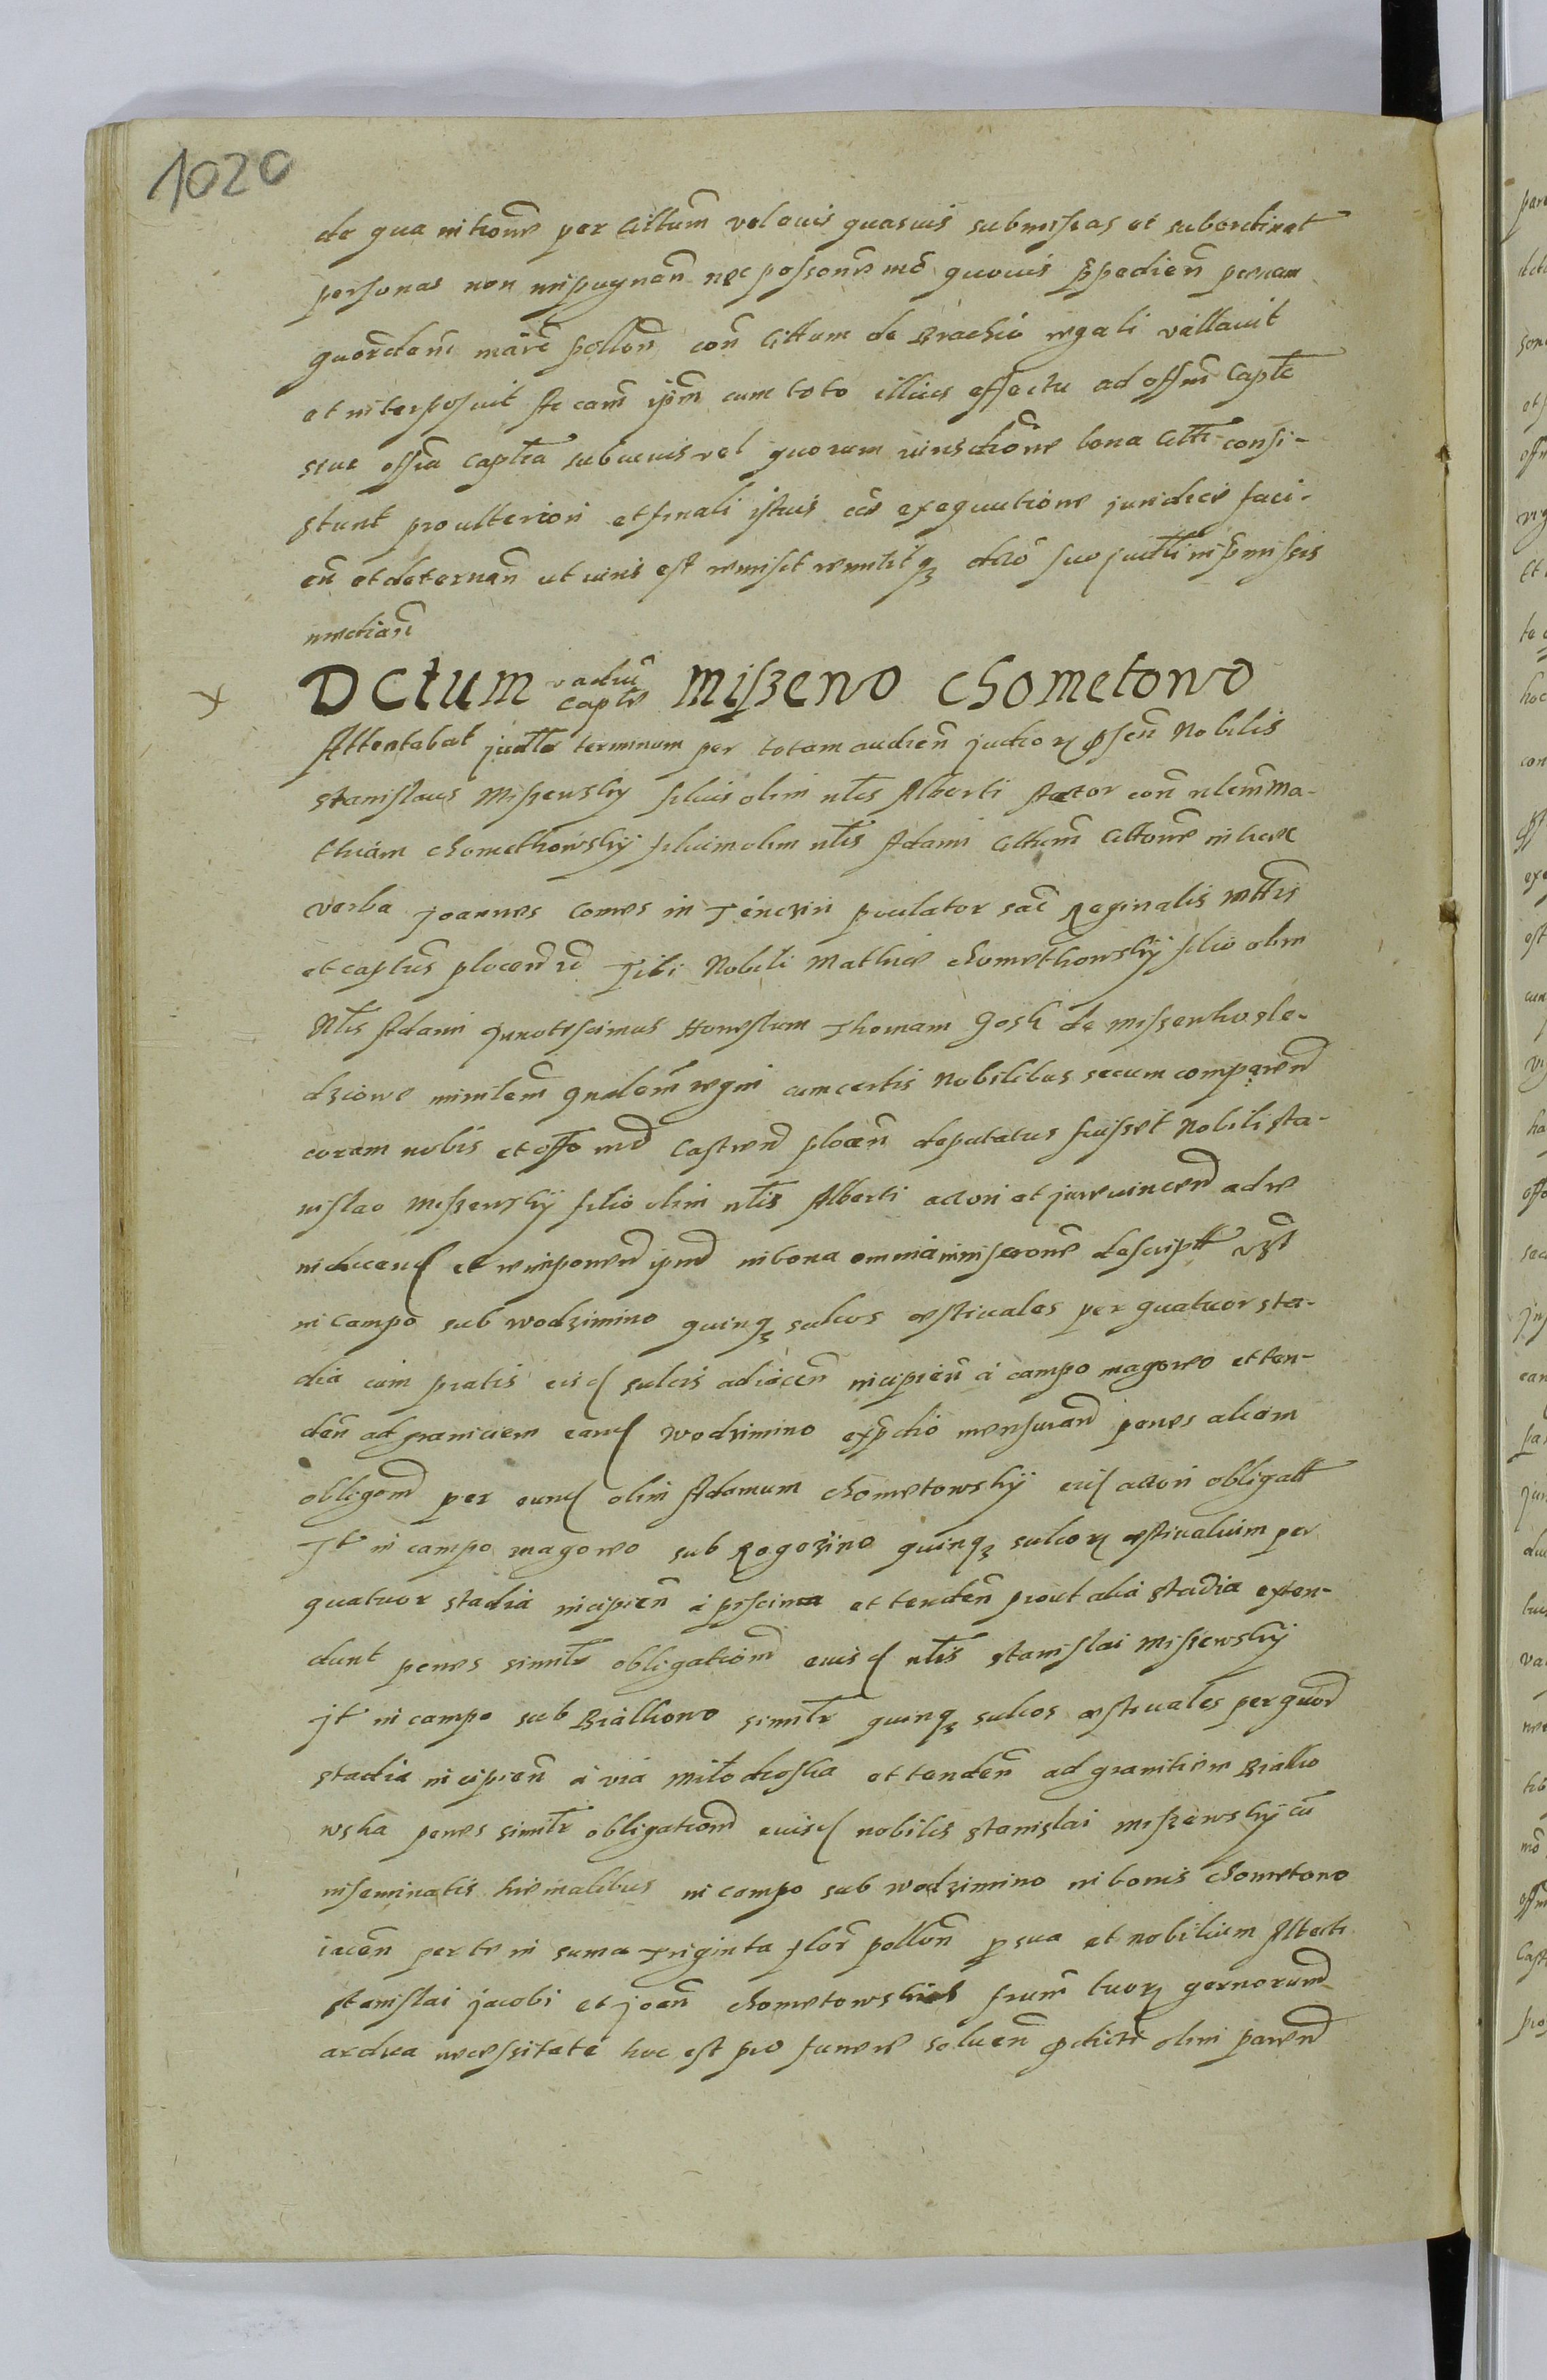 1020
de qua intione per Cittum vel cuis quasuis submissas et subordinat
personas non impugnan nec possone mo quouis impedien penam
quordem marc pollon con Cittum de Brachio regali vallauit
et interposuit Ac cam ipm cum toto illius effectu ad offm Capte
siue offia captea sub cuius vel quorum iurisdione bona Citti consi-
stunt pro ulteriori et finali istius cae exequutione juridice faci-
en et determan ut iuris est remisit remittitq dcro suo judtti in pmissis
median
DCtum vadiu Capte Miszeno Chometowo
Attentabat judtte terminum per totam audien judior psen Nobilis
Stanislaus Miszewsky filius olim nlis Alberti Actor con nlem Ma-
thiam Chomethowskÿ filium olim nlis Adami Cittum Cittone in haec
verba Joannes Comes in Tenczin poculator sac Reginalis Mttis
et captus plocen etc Tibi Nobili Mathiae Chomethowskÿ filio olim
Nlis Adami Qunotiscimus Honestum Thomam Gosk de Miszenko sle-
dziowe mintem gnalem regni cum certis Nobilibus secum comparen
coram nobis et offo nro Castren plocen deputatus fuisset Nobili Sta-
nislao Miszewskÿ filio olim nlis Alberti actori et jure vincen ad re
inducend et reimponen ipm in bona omnia in miserone descriptt vzt
in Campo sub Wodzimino quinq sulcos estiuales per quatuor sta-
dia cum pratis eisd sulcis adiacen incipien a campo magowo et ten-
den ad graniciem eand Wodzimino ex pdio mensurand penes aliam
obligaom per eund olim Adamum Chometowskÿ eid actori obligatt
Jt in campo magowo sub Rogozino quinq sulcor estiualium per
quatuor stadia incipien a piscina et tenden prout alia stadia exten-
dunt penes simitr obligationem eiusd nlis Stanislai Miszewskÿ
Jt in campo sub Bialkowo simitr quinq sulcos estiuales per quor
stadia incipien a via Miłodroska et tenden ad granitiem Bialko
wska penes simitr obligationem euisd nobilis Stanislai Miszewskÿ cu
inseminatis hiemalibus in campo sub Wodzimino in bonis Chometowo
iacen per te in suma Triginta flor pollon p sua et nobilium Alberti
Stanislai Jacobi et Joan Chometowskie frum tuor germanorum
ardua necessitate hoc est pro funere soluen pdicti olim paren